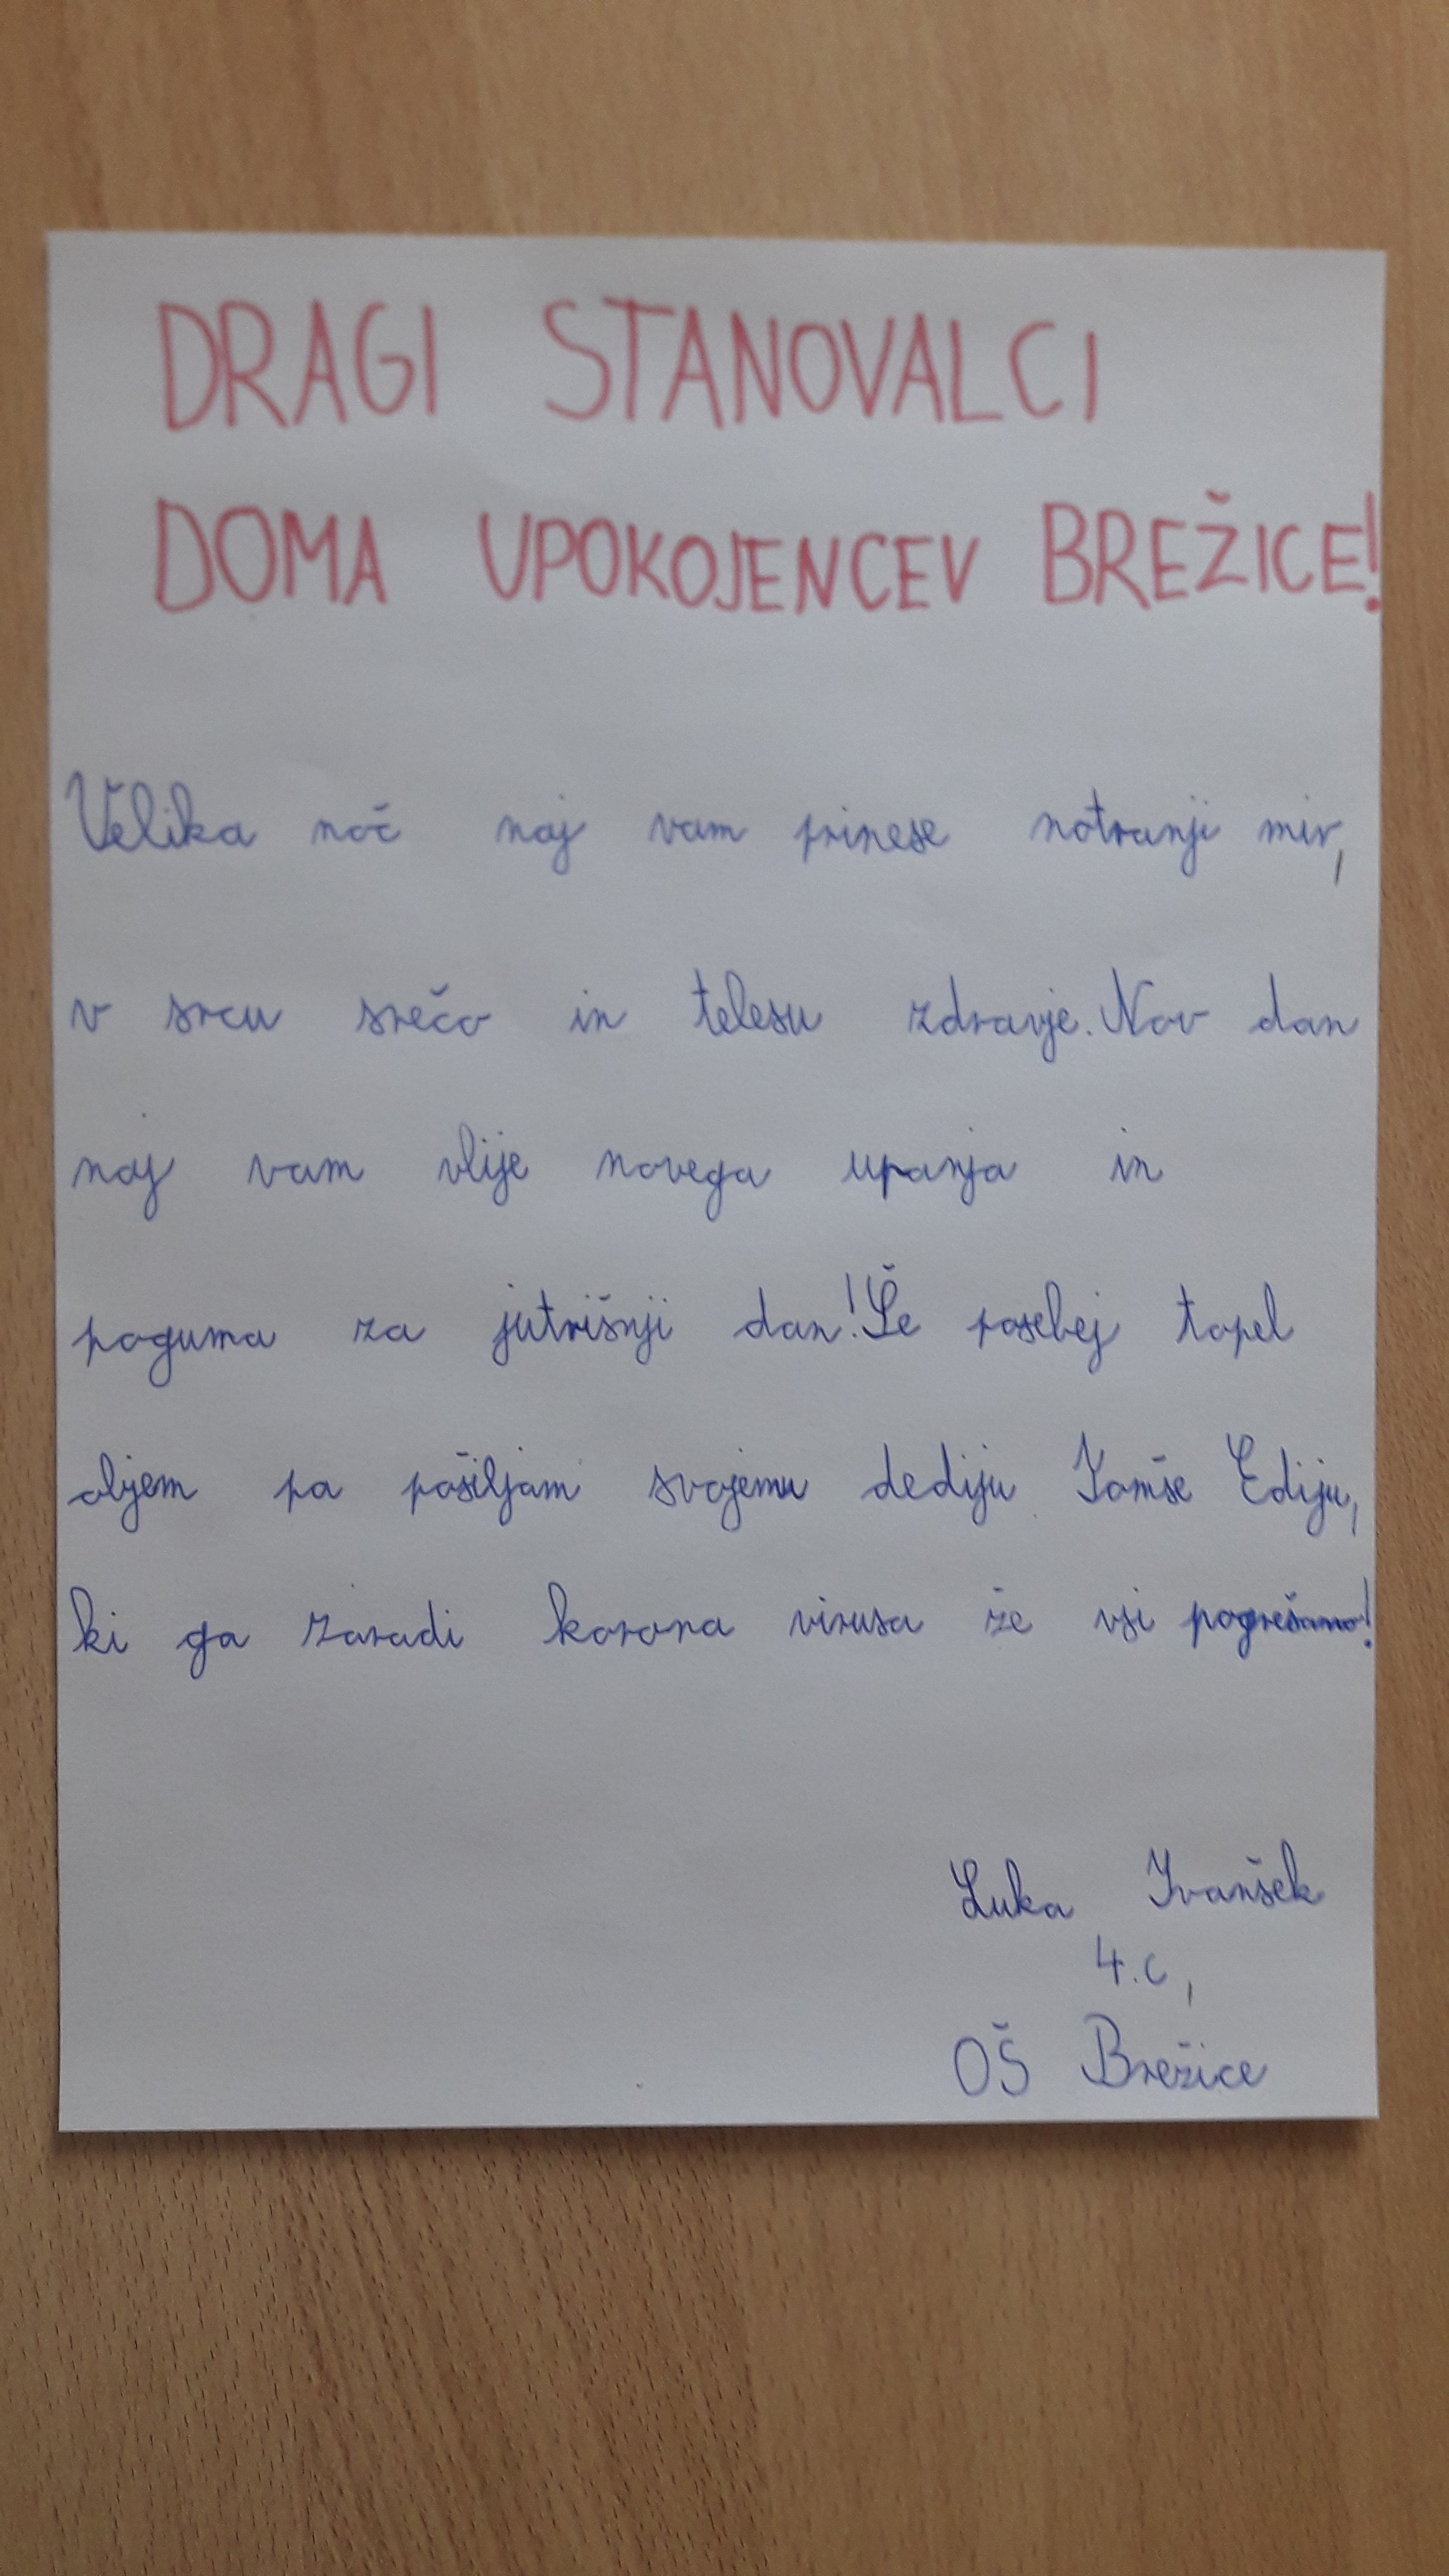 DRAGI STANOVALCI
DOMA UPOKOJENCEV BREŽICE!
Velika noč naj vam prinese notranji mir,
v srcu srečo in telesu zdravje. Nov dan
naj vam vlije novega upanja in
poguma za jutrišnji dan! Še posebej topel
objem pa pošiljam svojemu dediju Tomše Ediju,
ki ga zaradi korona virusa že vsi pogrešamo!
Luka Ivanšek
4.c,
OŠ Brežice